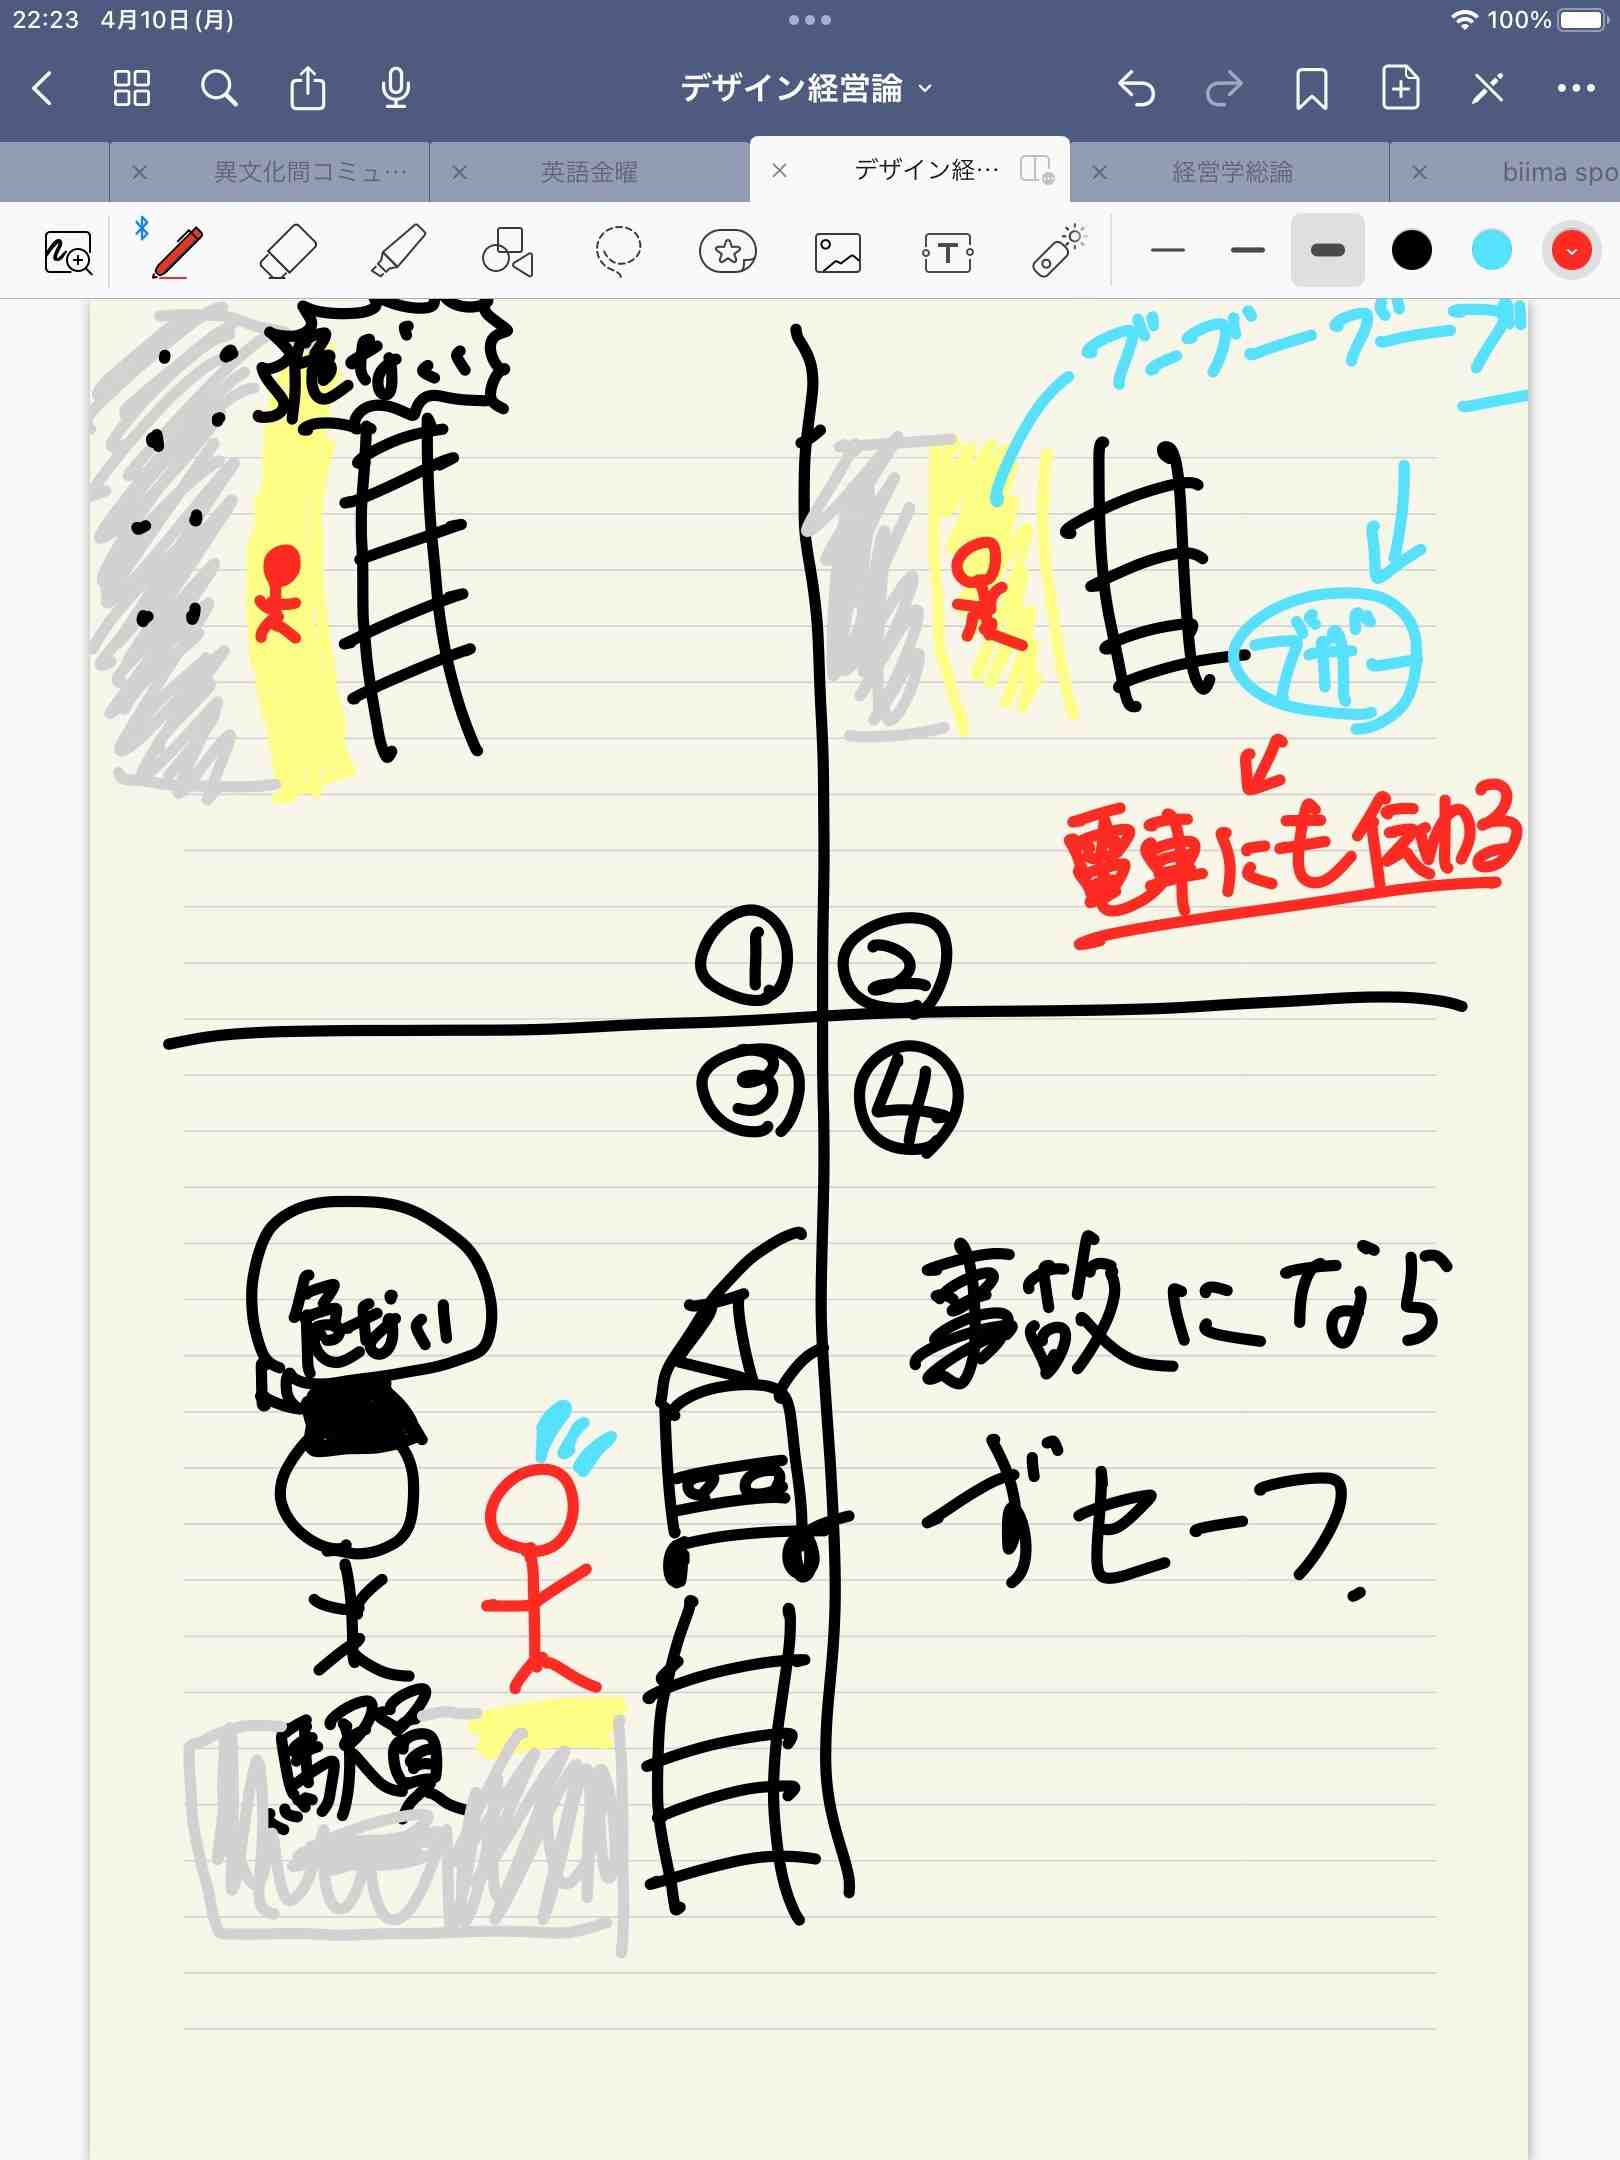 22:23 4月10日(月) 100%
デザイン経営論
異文化間コミュ… 英語金曜 デザイン経… 経営学総論 biima spo
危ない
ブーブーブーブ
ー
ブザー
電車にも伝わる
① ②
③ ④
危ない
駅員
事故になら
ずセーフ.